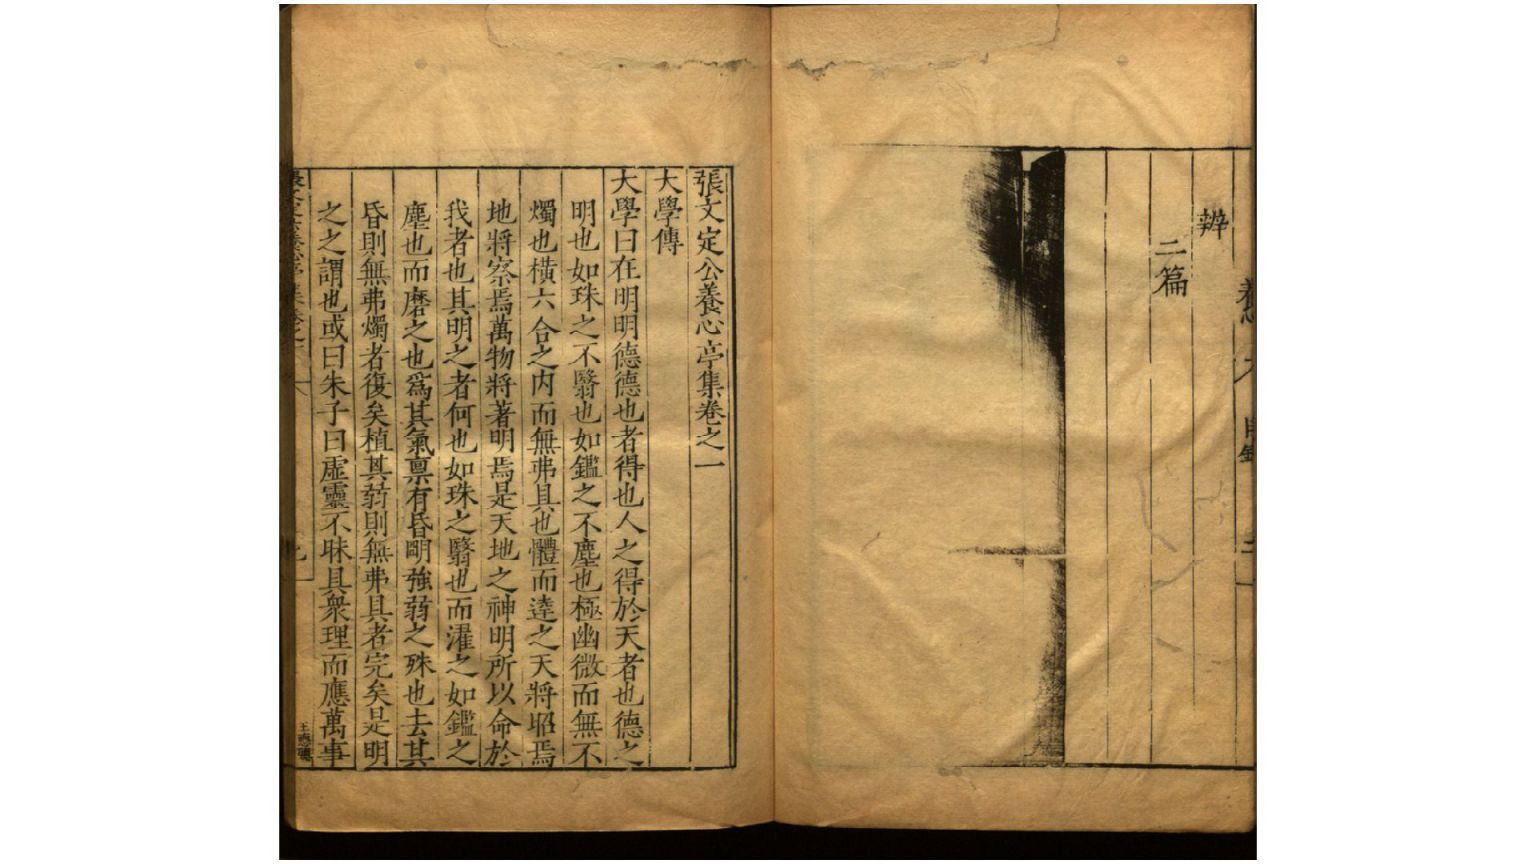 辨
二篇
張文定公養心亭集卷之一
大學傳
大學曰在明明德德也者得也人之得於天者也德之
明也如珠之不翳也如鑑之不塵也極幽微而無不
燭也橫六合之内而無弗具也體而達之天將昭焉
地將察焉萬物將著明焉是天地之神明所以命於
我者也其明之者何也如珠之翳也而濯之如鑑之
塵也而磨之也爲其氣禀有昏明強弱之殊也去其
昏則無弗燭者復矣植其弱則無弗具者完矣是明
之之謂也或曰朱子曰虛靈不昧具衆理而應萬事